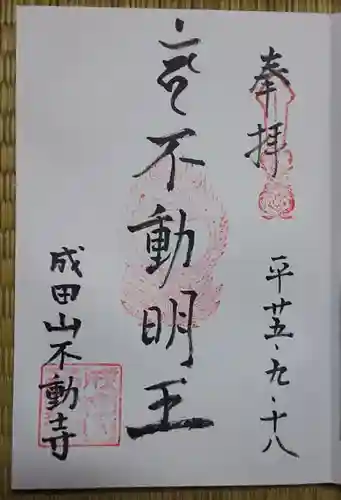 奉拝
平廿五・九・十八
不動明王
成田山不動寺